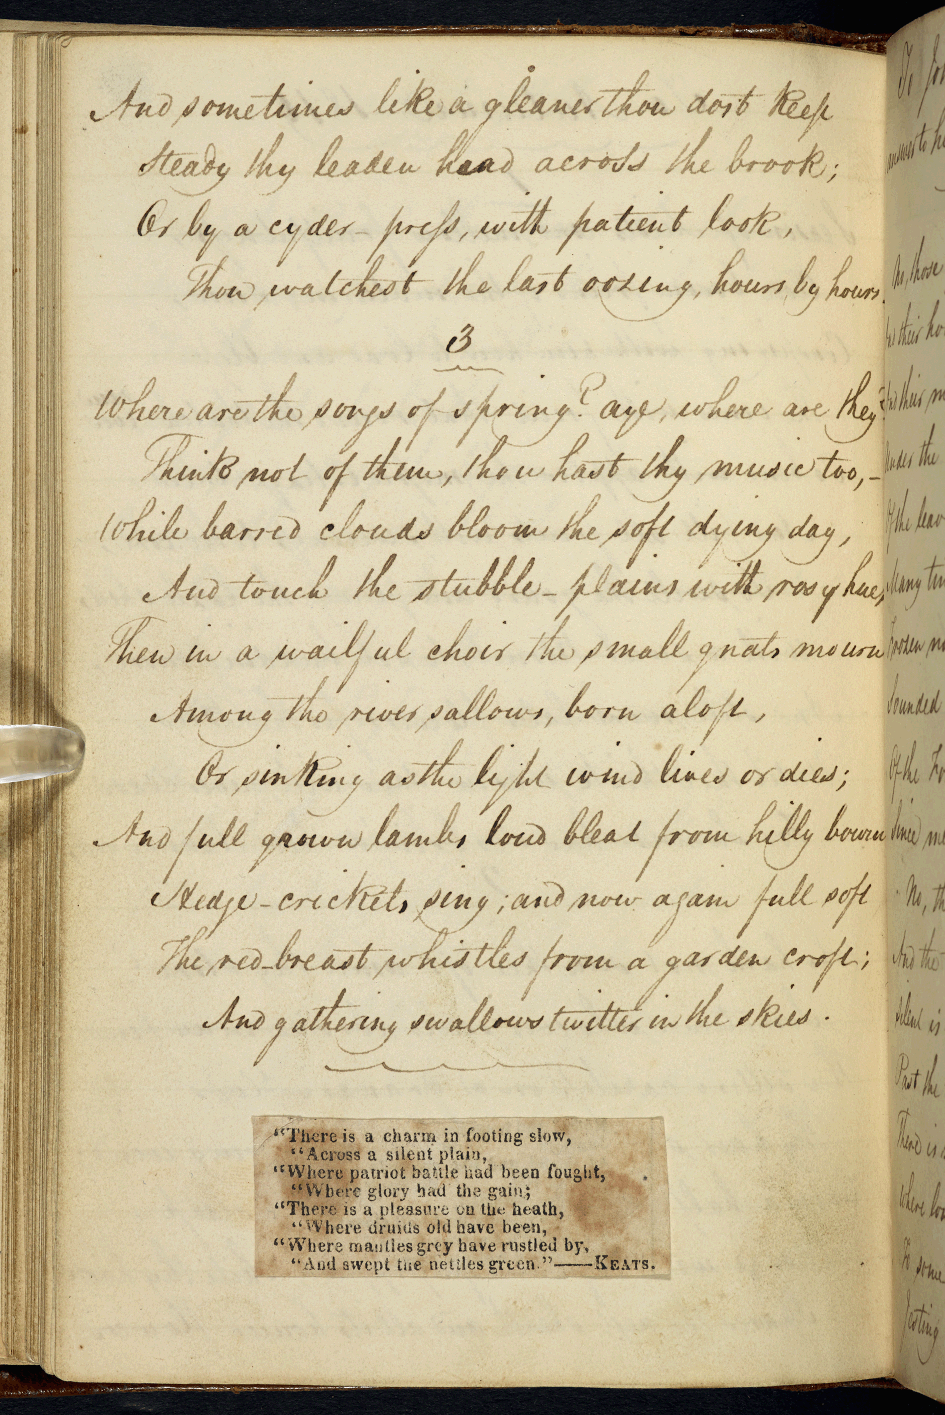 And sometimes like a gleaner thou dost keep
Steady thy leaden head across the brook;
Or by a cyder-press, with patient look,
Thou watchest the last oozing, hours by hours.
3
Where are the songs of spring? aye, where are they?
Think not of them, thou hast thy music too,-
While barred clouds bloom the soft dying day,
And touch the stubble-plains with rosy hue,
Then in a wailful choir the small gnats mourn
Among the river sallows, born aloft,
Or sinking as the light wind lives or dies;
And full grown lambs loud bleat from hilly bourn
Hedge-crickets sing; and now again full soft
The red-breast whistles from a garden croft;
And gathering swallows twitter in the skies.
"There is a charm in footing slow,
"Across a silent plain,
"Where patriot battle had been fought,
"Where glory had the gain;
"There is a pleasure on the heath,
"Where druids old have been,
"Where mantles grey have rustled by,
"And swept the nettles green."——KEATS.
To
answer to
No, those
their
their
Under the
Of the
Many
Frozen
Sounded
Of the
Since
No,
And the
Silent is
Past the
There is
Where
To some
Jesting